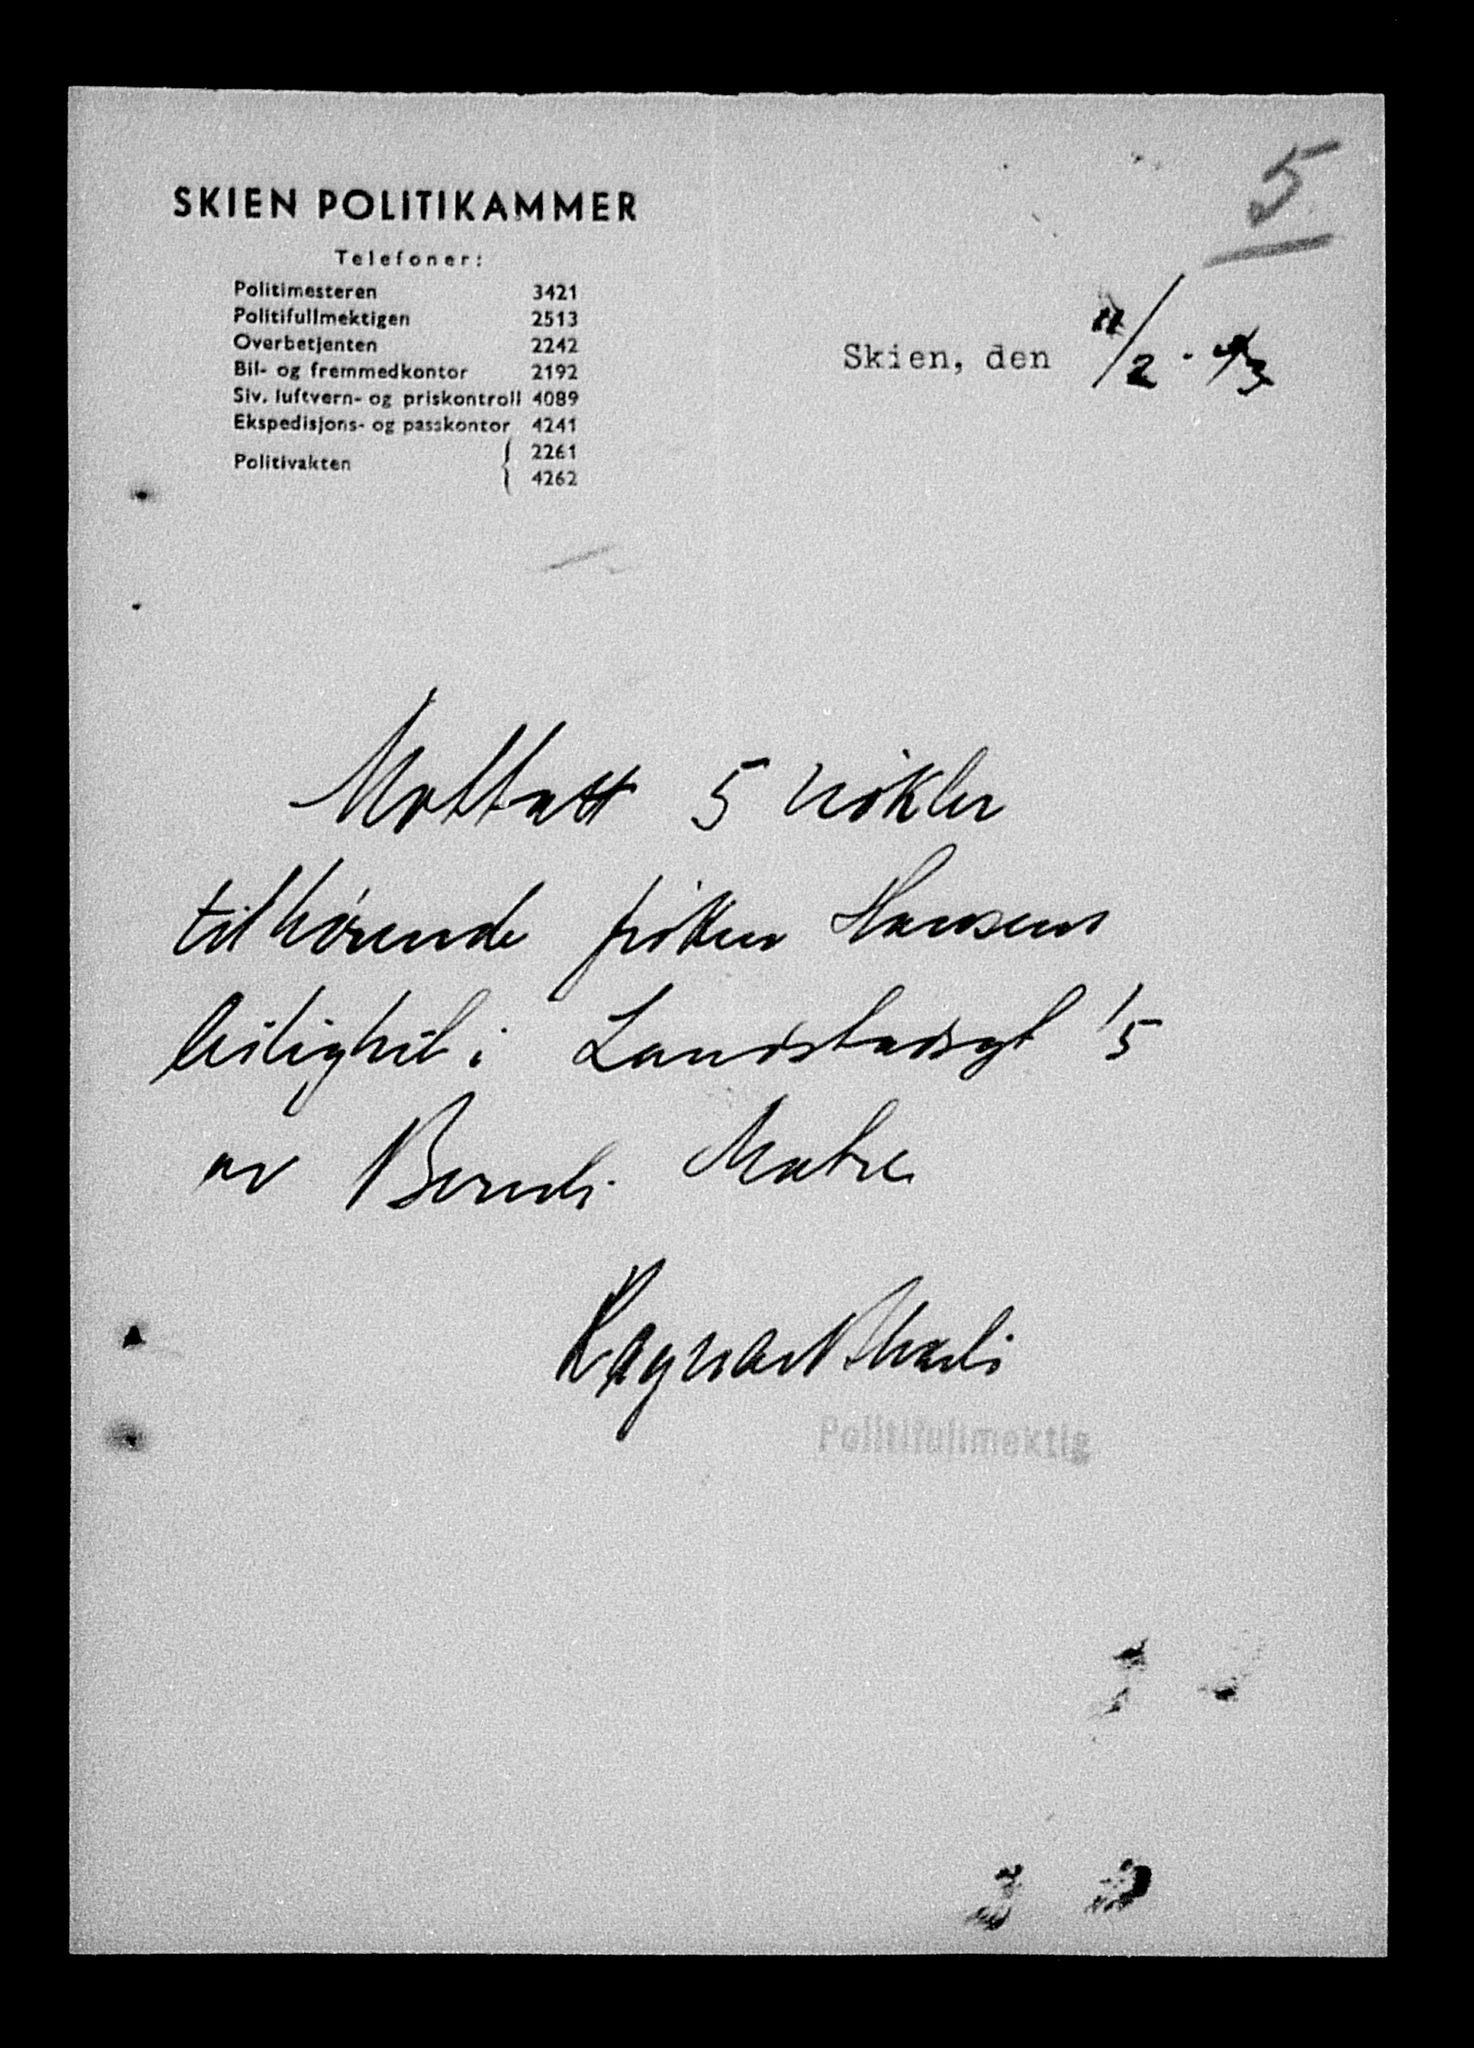 5
SKIEN POLITIKAMMER
Telefoner:
Politimesteren 3421
Politifullmektigen 2513
Overbetjenten 2242
Bil- og fremmedkontor 2192
Siv. luftvern- og priskontroll 4089
Ekspedisjons- og passkontor 4241
Politivakten { 2261
4262
Skien, den 11/2 - 43
Mottatt 5 nökler
tilhørende frøken Hansens
leilighet i Landstadsgt 15
av Matre
Ragnar
Politifullmektig